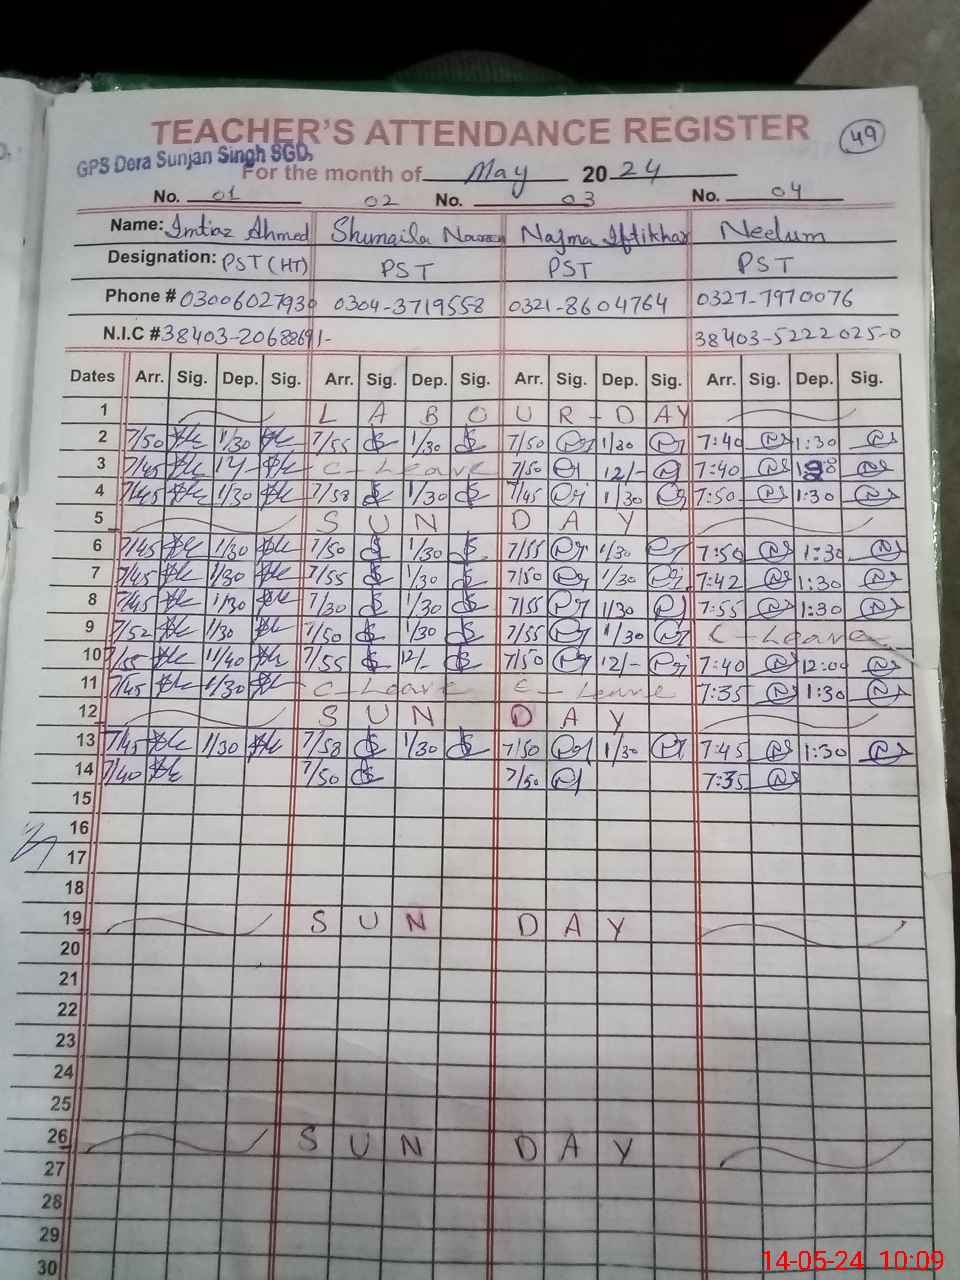 TEACHER'S ATTENDANCE REGISTER
49
GPS Dera Sunjan Singh SGD.
For the month of May 2024
No. 01 02 No. 03 No. 04
Name: Imtiaz Ahmed Shumaila Najma Iftikhar Neelum
Designation: PST (HT) PST PST PST
Phone # 03006027930 0304-3719558 0321-8604764 0327-7970076
N.I.C # 38403-2068869 1- 38403-5222025-0
Dates Arr. Sig. Dep. Sig. Arr. Sig. Dep. Sig. Arr. Sig. Dep. Sig. Arr. Sig. Dep. Sig.
1 LABOUR-DAY
2 7/50 1/30 7/55 1/30 7/50 1/30 7:40 1:30
3 7/45 12/- C-Leave 7/50 12/- 7:40
4 7/45 1/30 7/58 1/30 7/45 1/30 7:50 1:30
5 SUN DAY
6 7/45 1/30 7/50 1/30 7/55 1/30 7:50 1:30
7 7/45 1/30 7/55 1/30 7/50 1/30 7:42 1:30
8 7/45 1/30 7/30 1/30 7/55 1/30 7:55 1:30
9 7/52 1/30 7/50 1/30 7/55 1/30 C-Leave
10 7/55 11/40 7/55 12/- 7/50 12/- 7:40 12:00
11 7/45 1/30 C-Leave C-Leave 7:35 1:30
12 SUN DAY
13 7/45 1/30 7/58 1/30 7/50 1/30 7:45 1:30
14 7/40 7/50 7/50 7:35
15
16
17
18
19 SUN DAY
20
21
22
23
24
25
26 SUN DAY
27
28
29
30
14-05-24 10:09